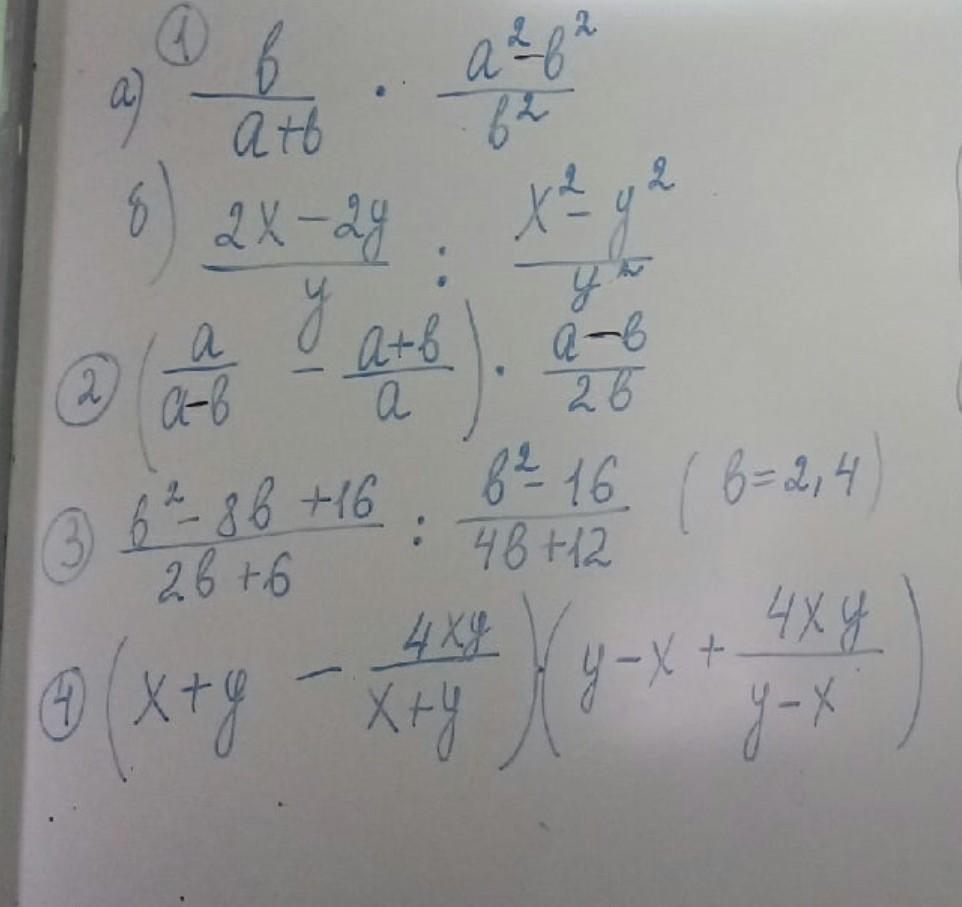 ① а) b/(a+b) · (a²-b²)/b²
б) (2x-2y)/y : (x²-y²)/y²
② (a/(a-b) - (a+b)/a) · (a-b)/(2b)
③ (b²-8b+16)/(2b+6) : (b²-16)/(4b+12) (b=2,4)
④ (x+y - 4xy/(x+y))·(y-x + 4xy/(y-x))